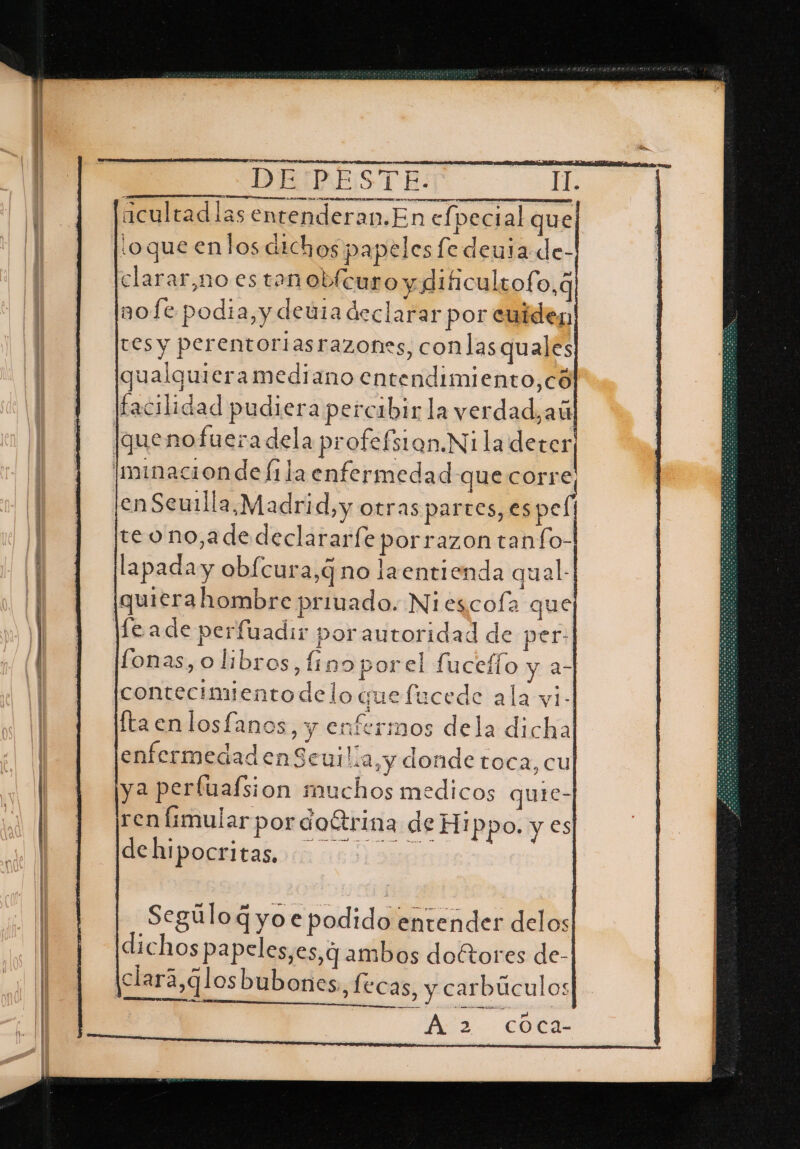 DE PESTE. II.
acultad las entenderan. En eſpecial que
lo que en los dichos papeles ſe deuia de-
clarar, no es tan obſcuro y dificultoſo, q̃
no ſe podia, y deuia declarar por euiden
tes y perentorias razones, con las quales
qualquiera mediano entendimiento, cõ
facilidad pudiera percibir la verdad, aũ
que no fuera dela profeſsion. Ni la deter
minacion de ſi la enfermedad que corre
en Seuilla, Madrid, y otras partes, es peſ
te o no, a de declararſe por razon tan ſo-
lapada y obſcura, q̃ no la entienda qual-
quiera hombre priuado. Ni es coſa que
ſe a de perſuadir por autoridad de per-
ſonas, o libros, ſino por el ſuceſſo y a-
contecimiento de lo que ſucede a la vi-
ſta en los ſanos, y enfermos dela dicha
enfermedad en Seuilla, y donde toca, cu
ya perſuaſsion muchos medicos quie-
ren ſimular por doctrina de Hippo. y es
de hipocritas.
Segũ lo q̃ yo e podido entender delos
dichos papeles, es, q̃ ambos doctores de-
clarã, q̃ los bubones, ſecas, y carbũculos
A 2 cõca-